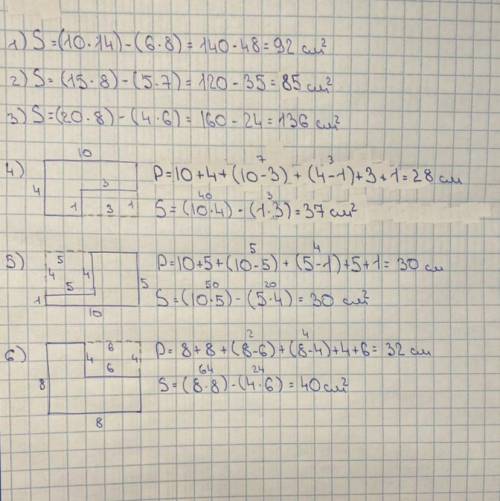 1) S=(10·14)-(6·8)=140-48=92 см²
2) S=(15·8)-(5·7)=120-35=85 см²
3) S=(20·8)-(4·6)=160-24=136 см²
4)
10
4
3
1
3
1
7
3
P=10+4+(10-3)+(4-1)+3+1=28 см
40
3
S=(10·4)-(1·3)=37 см²
5)
5
4
4
5
5
1
10
5
4
P=10+5+(10-5)+(5-1)+5+1=30 см
50
20
S=(10·5)-(5·4)=30 см²
6)
6
4
4
6
8
8
2
4
P=8+8+(8-6)+(8-4)+4+6=32 см
64
24
S=(8·8)-(4·6)=40 см²